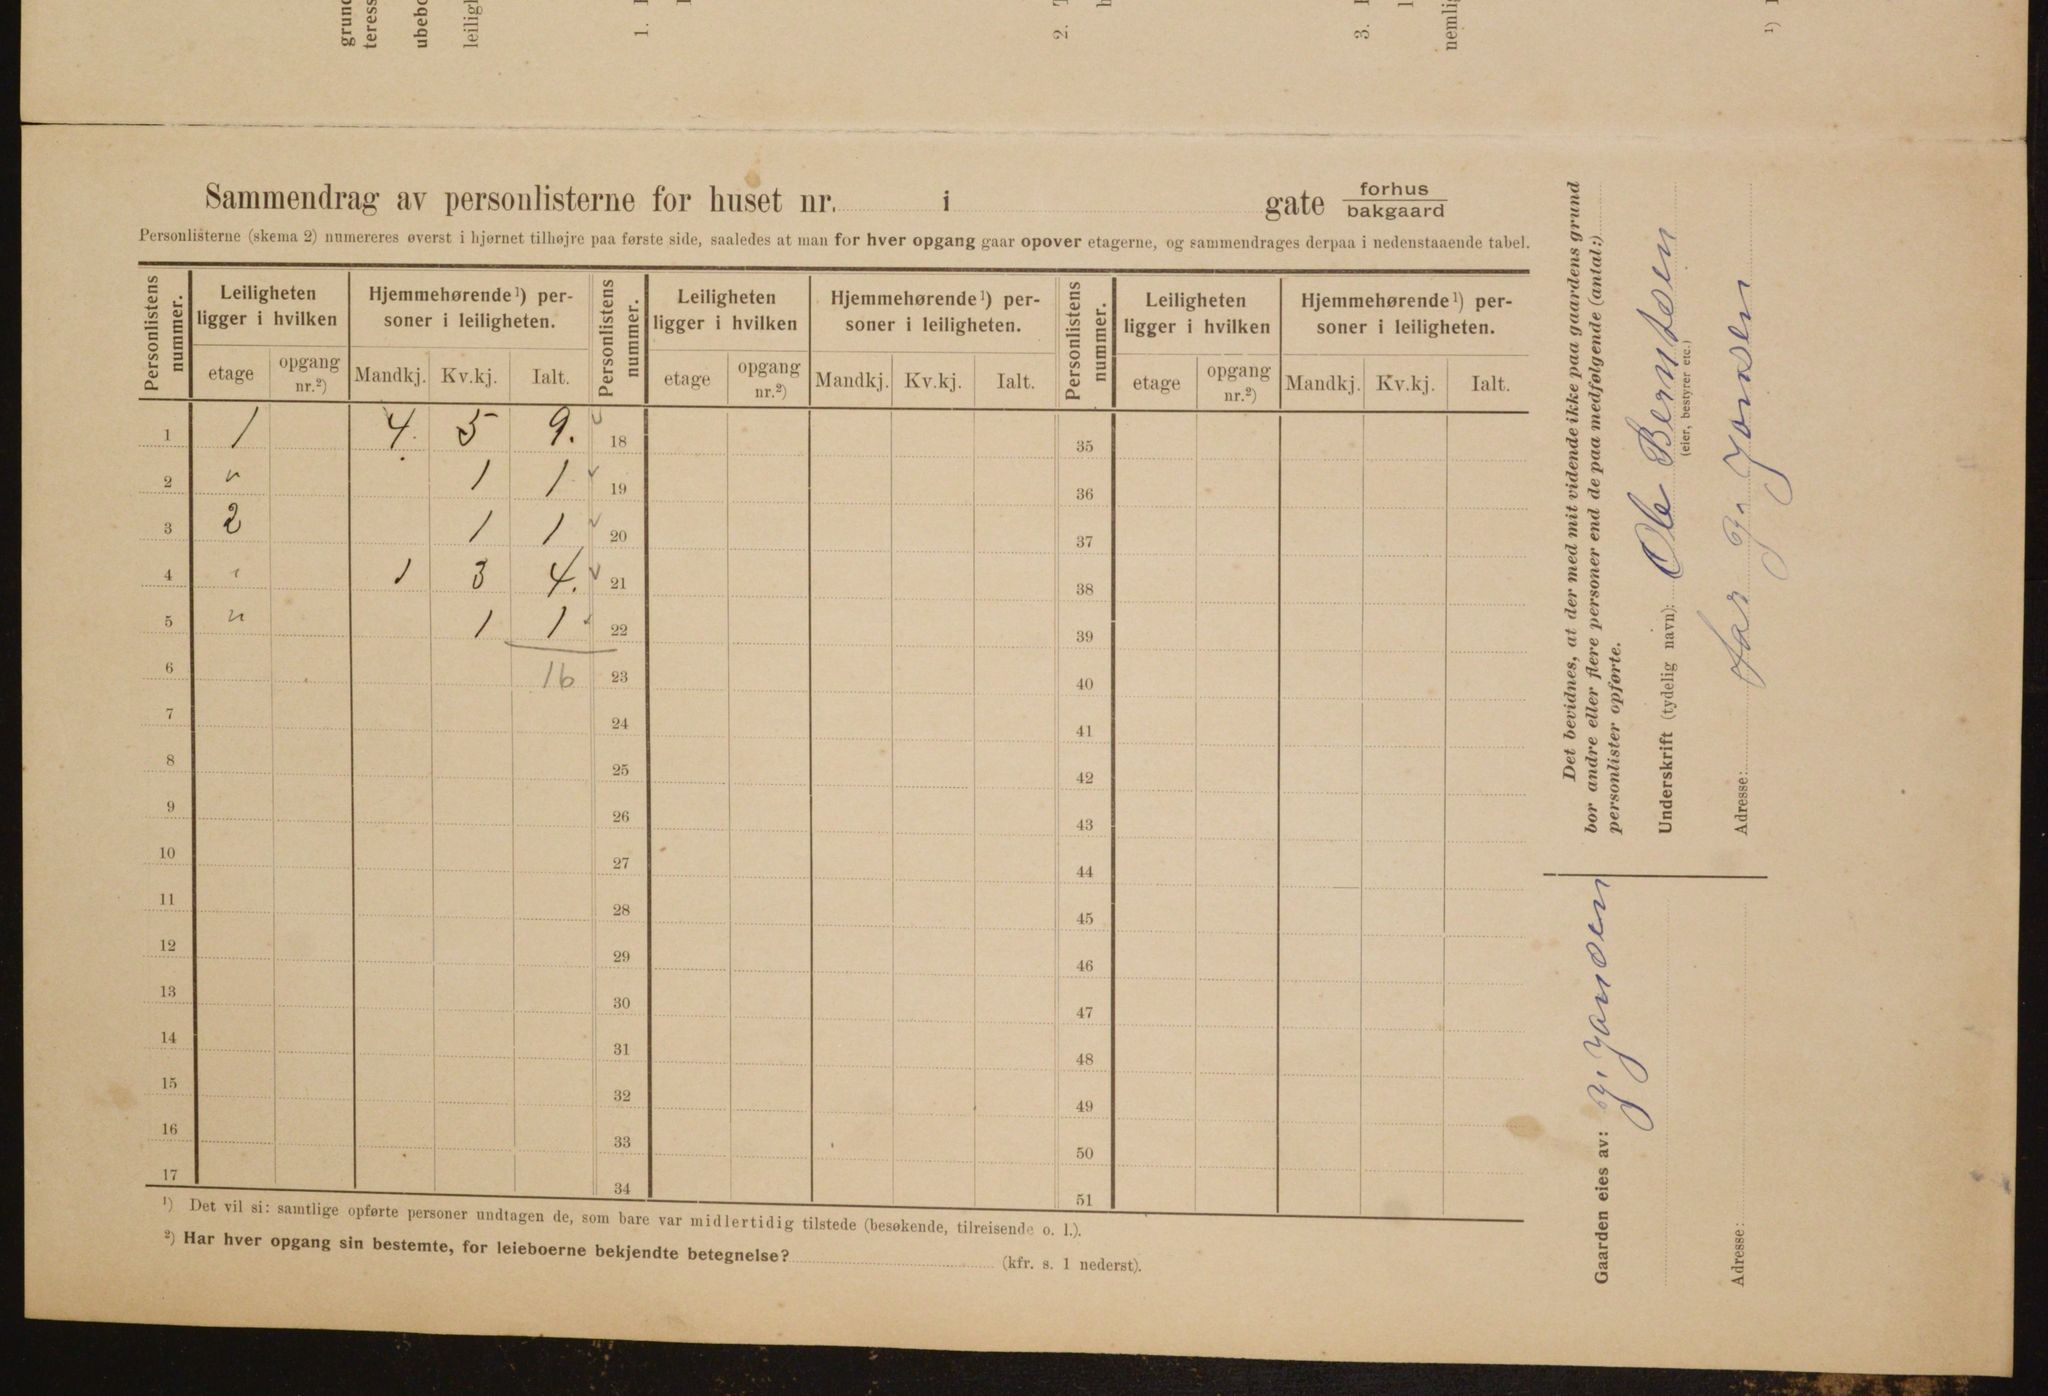 grund
teress
ubebo
leiligh
1.
2.
3.
nemlig
¹)
Sammendrag av personlisterne for huset nr. i gate forhus
bakgaard
Personlisterne (skema 2) numereres øverst i hjørnet tilhøjre paa første side, saaledes at man for hver opgang gaar opover etagerne, og sammendrages derpaa i nedenstaaende tabel.
Personlistens nummer. Leiligheten ligger i hvilken Hjemmehørende¹) personer i leiligheten. Personlistens nummer. Leiligheten ligger i hvilken Hjemmehørende¹) personer i leiligheten. Personlistens nummer. Leiligheten ligger i hvilken Hjemmehørende¹) personer i leiligheten.
etage opgang nr.²) Mandkj. Kv.kj. Ialt. etage opgang nr.²) Mandkj. Kv.kj. Ialt. etage opgang nr.²) Mandkj. Kv.kj. Ialt.
1 1 4. 5 9. 18 35
2 " 1 1 19 36
3 2 1 1 20 37
4 " 1 3 4. 21 38
5 " 1 1 22 39
6 16 23 40
7 24 41
8 25 42
9 26 43
10 27 44
11 28 45
12 29 46
13 30 47
14 31 48
15 32 49
16 33 50
17 34 51
¹) Det vil si: samtlige opførte personer undtagen de, som bare var midlertidig tilstede (besøkende, tilreisende o. l.).
²) Har hver opgang sin bestemte, for leieboerne bekjendte betegnelse? (kfr. s. 1 nederst).
Det bevidnes, at der med mit vidende ikke paa gaardens grund
bor andre eller flere personer end de paa medfølgende (antal:)
personlister opførte.
Underskrift (tydelig navn): Ole Berntsen
(eier, bestyrer etc.)
Adresse: for J. Jansen
Gaarden eies av: J. Jansen
Adresse: